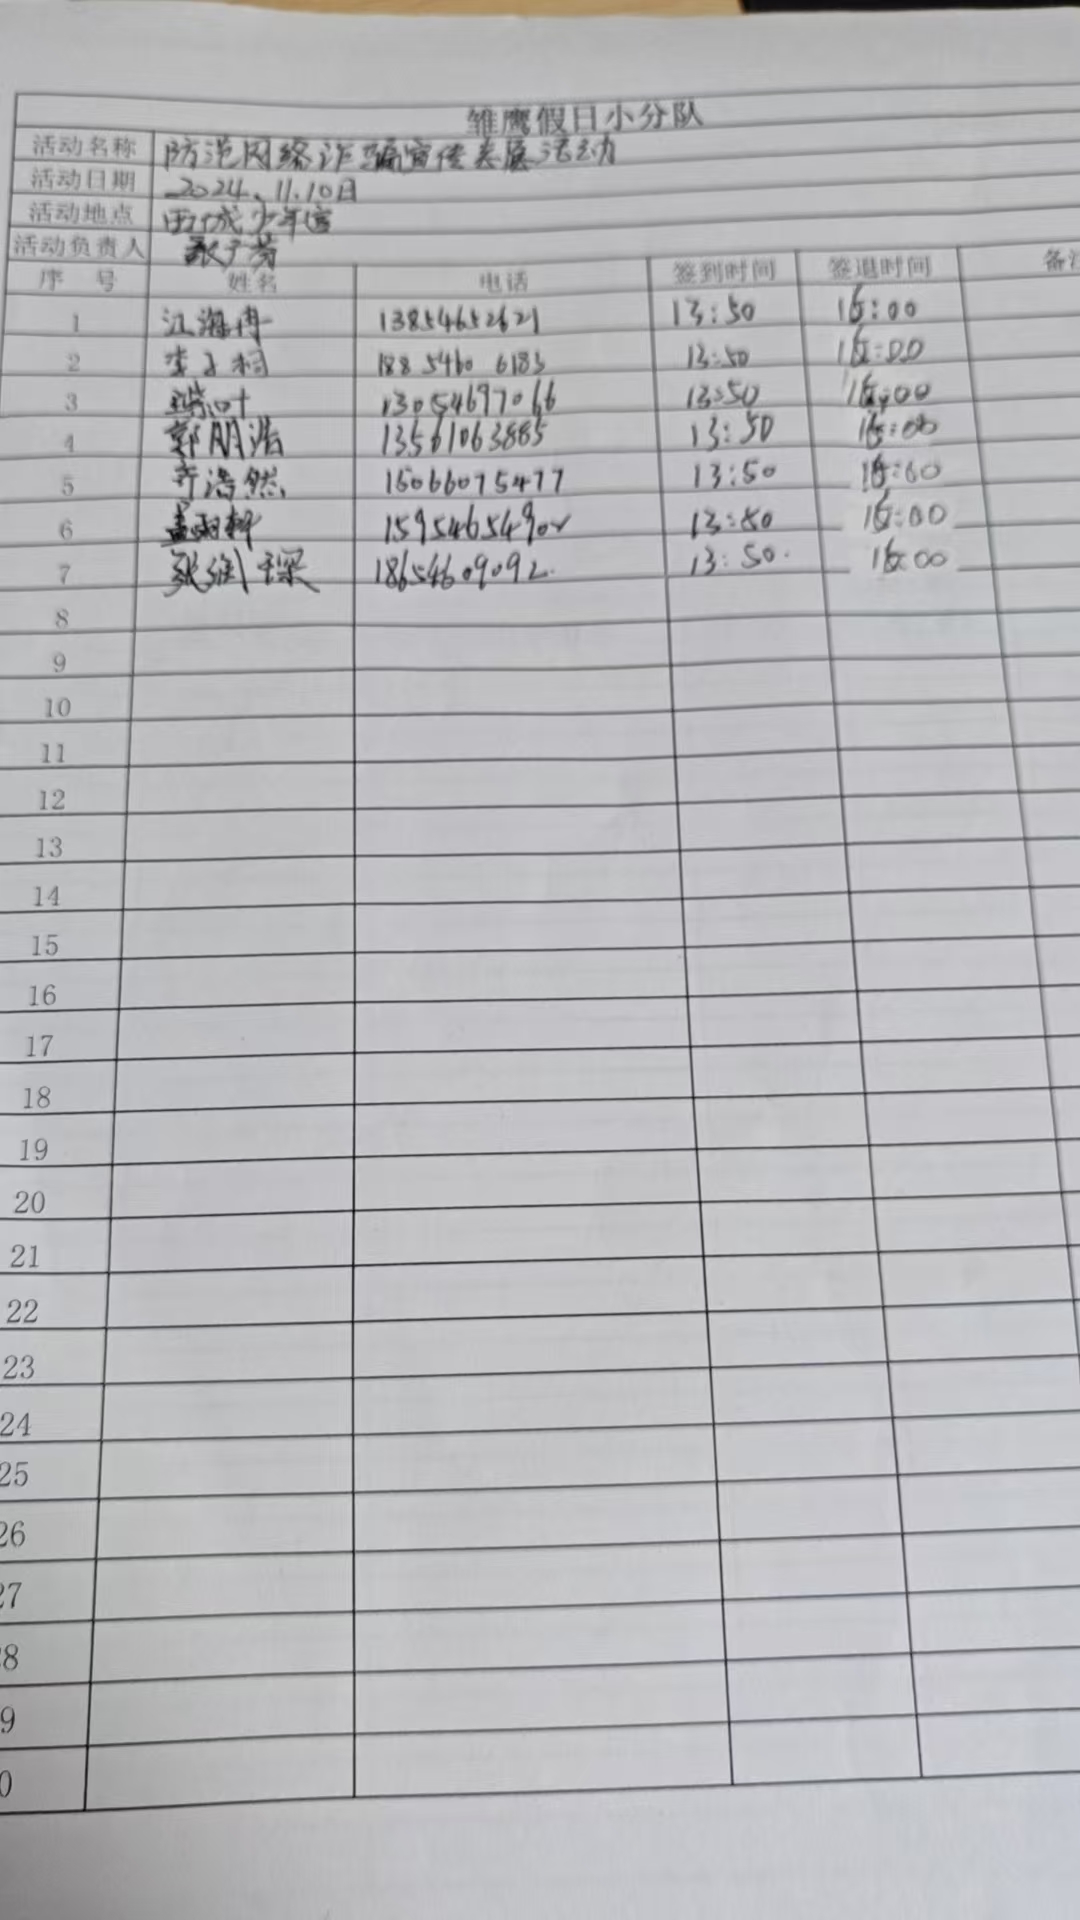 雏鹰假日小分队
活动名称 防范网络诈骗宣传类展活动
活动日期 2024、11.10日
活动地点 少年宫
活动负责人
序号 姓名 电话 签到时间 签退时间 备注
1 江海博 13854652621 13:50 :00
2 李子桐 188 5460 6183 13:50 :00
3 13054697066 13:50 :00
4 郭朋浩 13561063885 13:50 :00
5 齐浩然 15066075477 13:50 :00
6 13:50 :00
7 18654609092. 13:50. :00
8
9
10
11
12
13
14
15
16
17
18
19
20
21
22
23
24
25
26
27
28
9
0